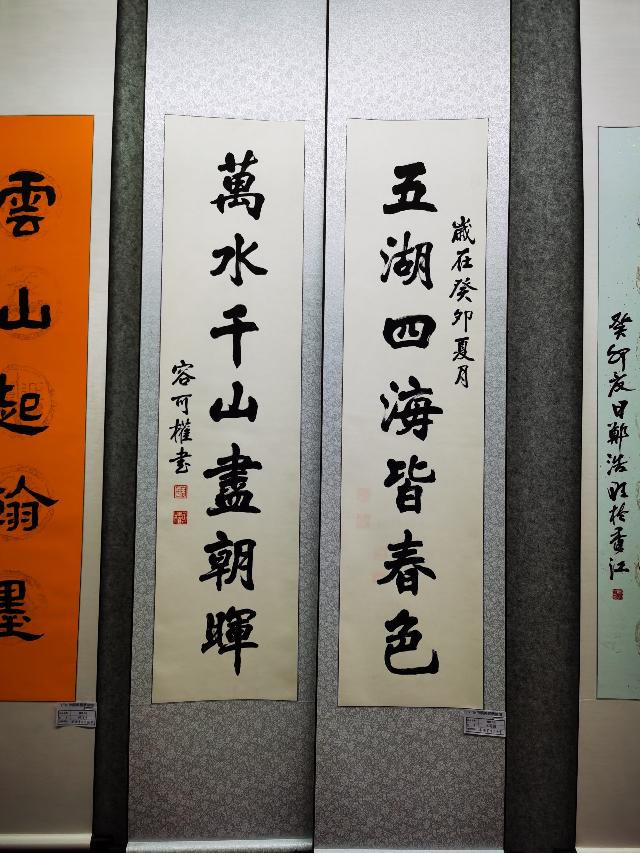 五湖四海皆春色
歲在癸卯夏月
萬水千山盡朝暉
容可權書
雲山起翰墨
癸卯夏日鄭浩
香江